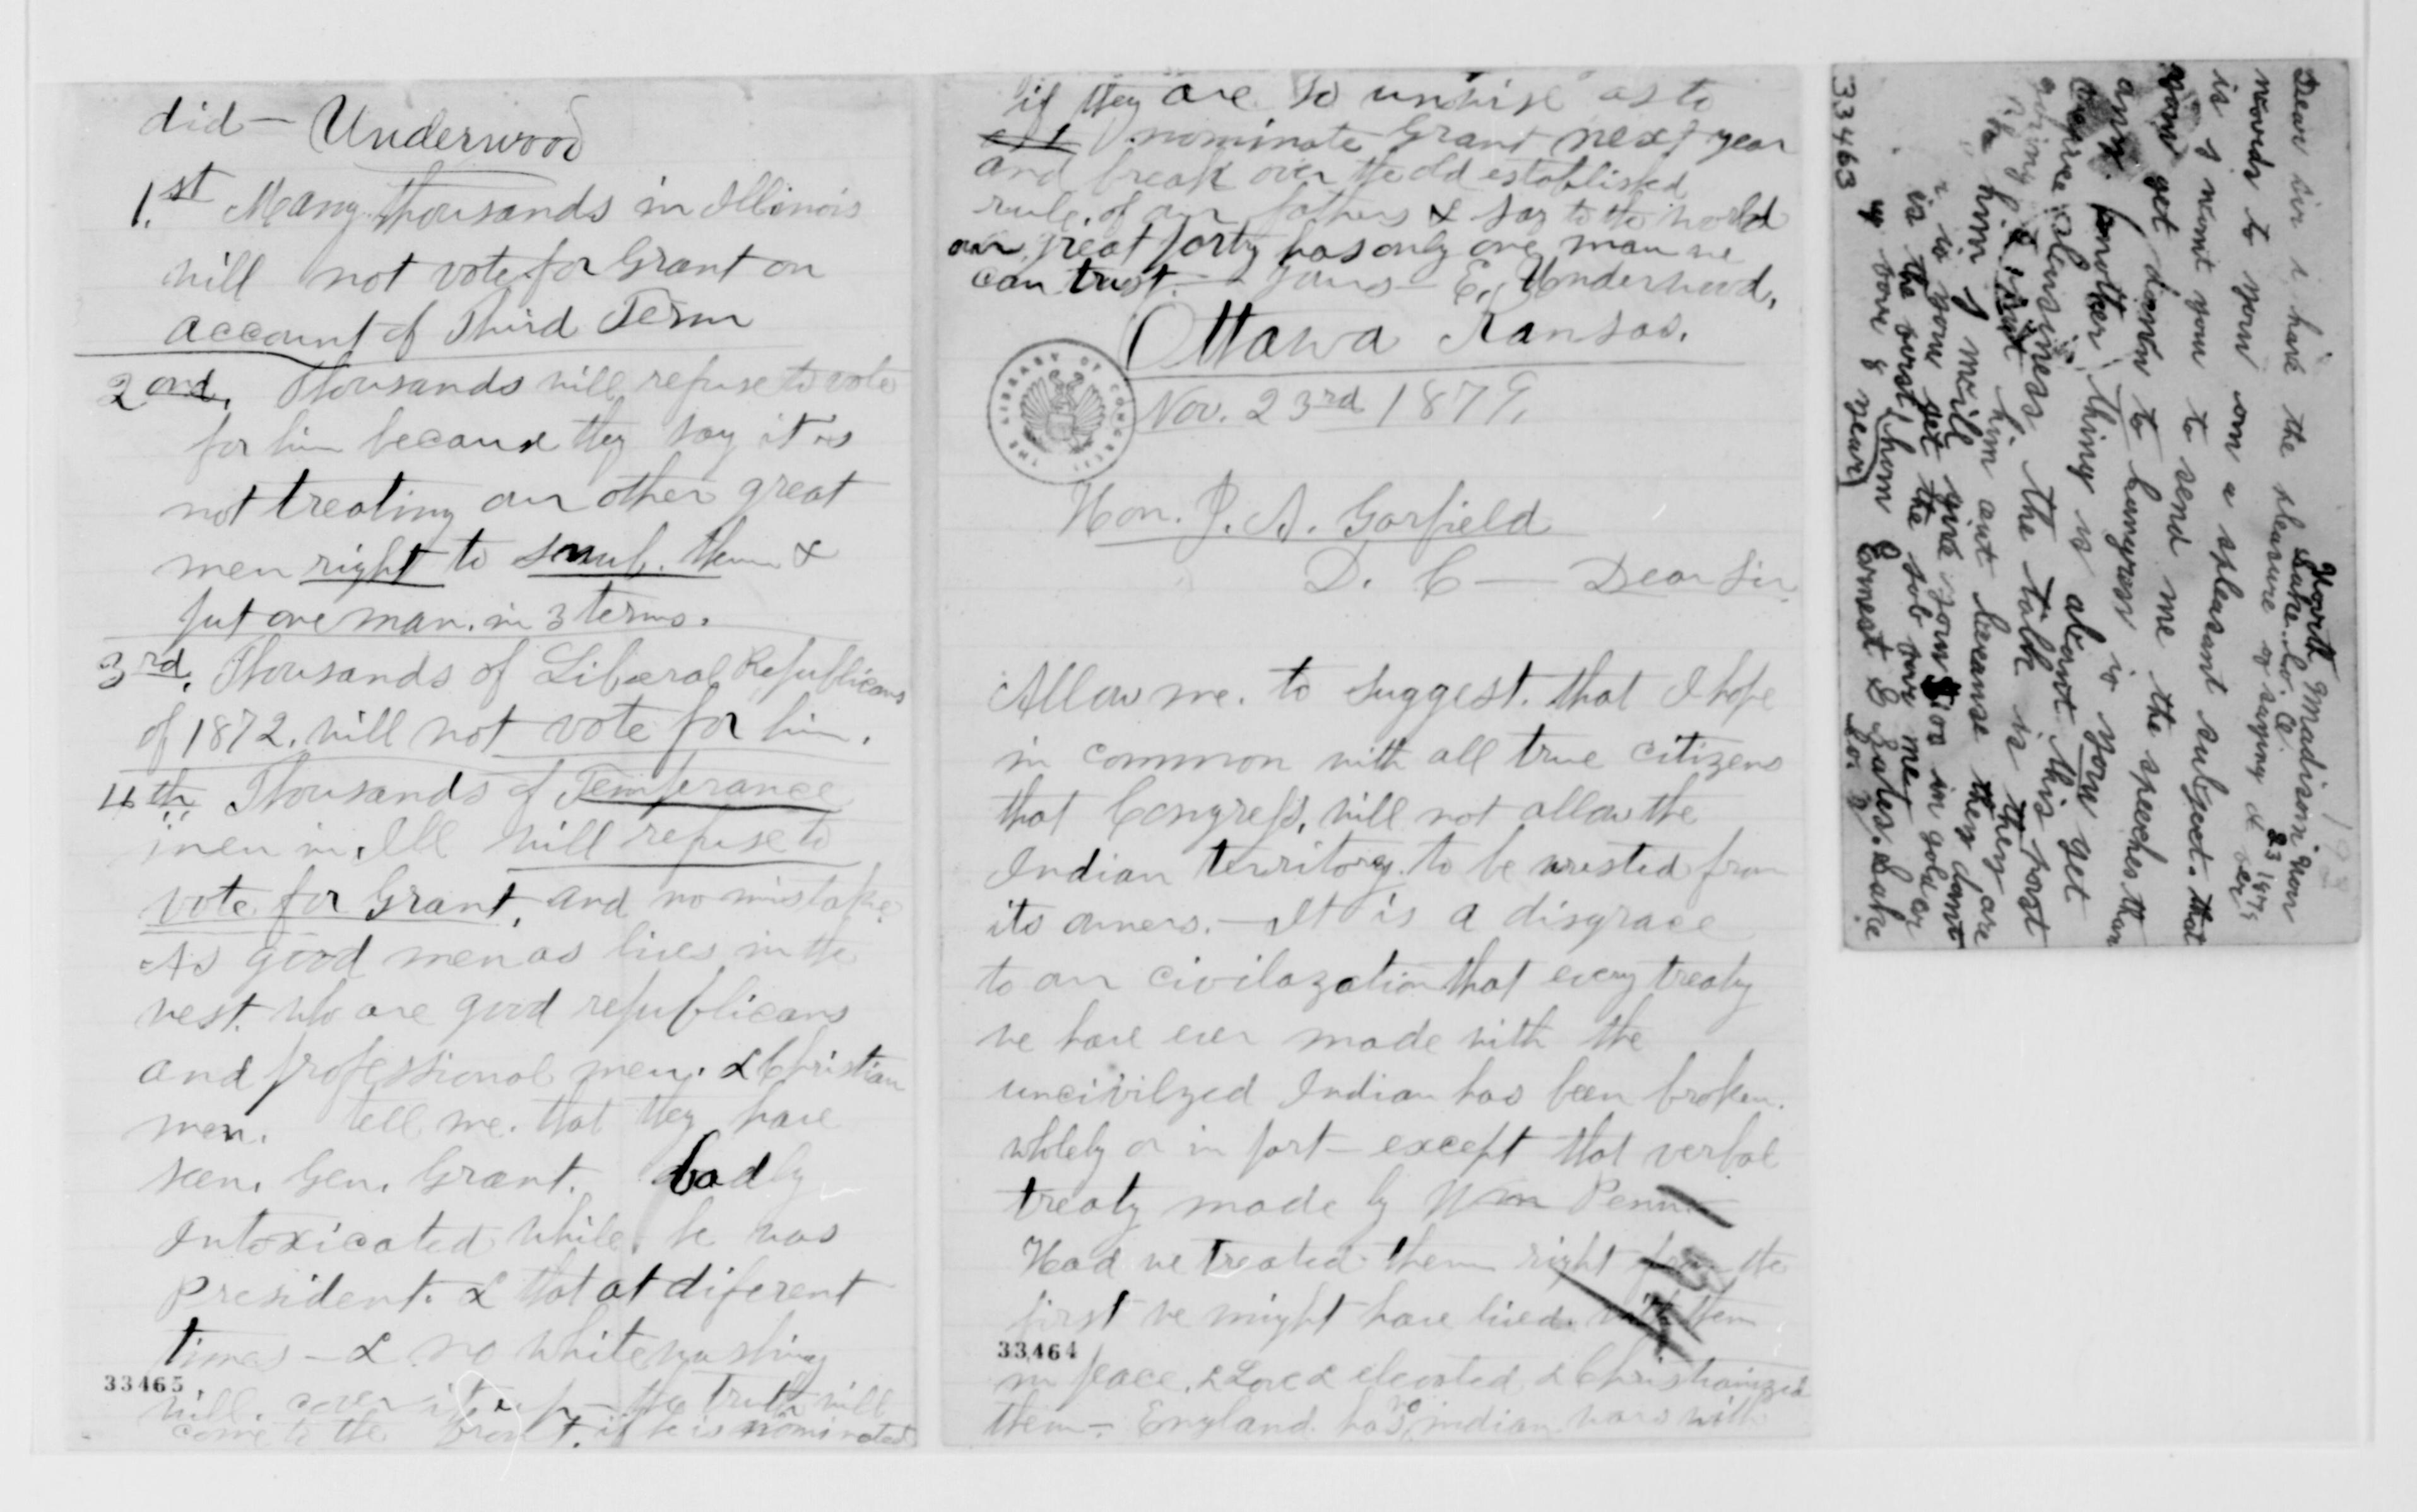 did — Underwood
1.st Many thousands in Illinois
will not vote for Grant on
account of Third Term
2ond. Thousands will refuse to vote
for him because they say it is
not treating our other great
men right to snub. them &
put one man. in 3 terms.
3rd. Thousands of Liberal Republicans
of 1872. will not vote for him.
4th Thousands of Temperance
men in. Ill will refuse to
vote for Grant, and no mistake.
As good men as lives in the
west. who are good republicans
and professional men. & Christian
men. tell me. that they have
seen. Gen. Grant. badly
Intoxicated while. he was
President. & that at diferent
times — & no white washing
33465
will. cover it up — the truth will
come to the front. if he is nominated
if they are so unwise as to
nominate Grant next year
and break over the old established
rule. of our fathers & say to the world
our great party has only one man we
can trust. — Yours — E. Underwood,
Ottawa Kansas.
THE LIBRARY OF CONGRESS
Nov. 23rd 1879,
Hon. J. A. Garfield
D. C — Dear Sir
Allow me. to suggest. that I hope
in common with all true citizens
that Congress, will not allow the
Indian territory. to be wrested from
its owners. — It is a disgrace
to our civilazation that every treaty
we have ever made with the
uncivilzed Indian has been broken.
wholely or in part — except that verbal
treaty made by Wm Penn
Had we treated them right from the
first we might have lived. with them
33464
in peace. & Love & elevated & Christianized
them — England has no indian wars with
North Madison Nov
Lake. Co. O. 23 1879
Dear Sir i have the pleasure of saying a
words to you on a pleasant subject. that
is I want you to send me the speeches than
you get down to
any. another thing is about this post
you get
the talk is they are
him out because they dont
him I will give you $100 in gold or
is you get the job for me
is the first
up
year) Ernest E
33463